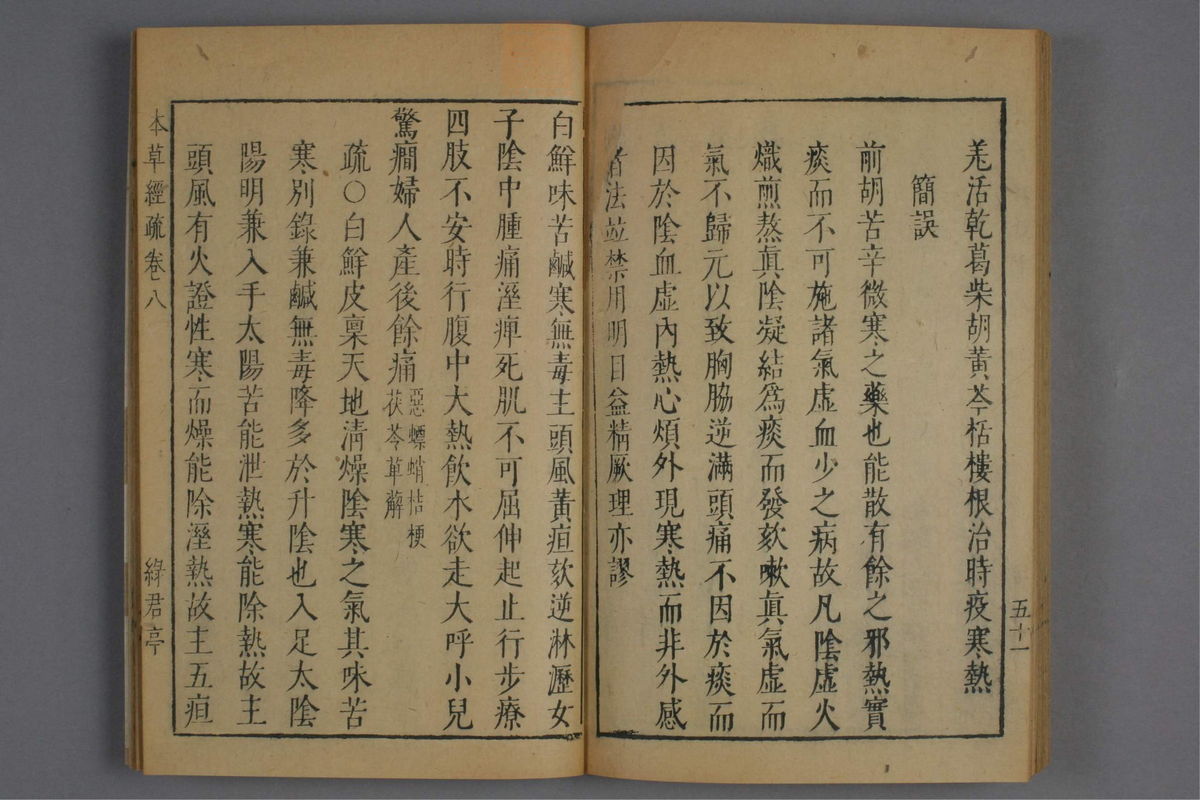 羗活乾葛柴胡黃芩栝樓根治時疫寒熱
簡誤
前胡苦辛微寒之藥也能散有餘之邪熱實
痰而不可施諸氣虛血少之病故凡陰虛火
熾煎熬眞陰凝結爲痰而發欬嗽眞氣虛而
氣不歸元以致胸脇逆滿頭痛不因於痰而
因於陰血虛內熱心煩外現寒熱而非外感
者法並禁用明日益精厥理亦謬
五十一
白鮮味苦鹹寒無毒主頭風黃疸欬逆淋瀝女
子陰中腫痛溼痺死肌不可屈伸起止行步療
四肢不安時行腹中大熱飲水欲走大呼小兒
驚癎婦人產後餘痛惡螵蛸桔梗
茯苓萆薢
疏○白鮮皮稟天地淸燥陰寒之氣其味苦
寒別錄兼鹹無毒降多於升陰也入足太陰
陽明兼入手太陽苦能泄熱寒能除熱故主
頭風有火證性寒而燥能除溼熱故主五疸
本草經疏卷八
綠君亭